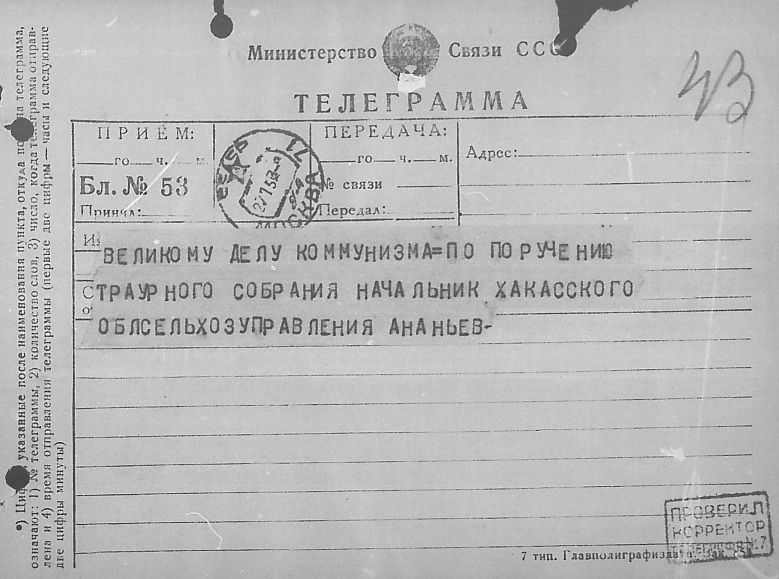 Министерство Связи ССС
ТЕЛЕГРАММА
43
ПРИЕМ:
го ч. м.
Бл. № 53
Принял:
МОСКВА
ПЕРЕДАЧА:
го ч. м.
№ связи
Передал:
Адрес:
ВЕЛИКОМУ ДЕЛУ КОММУНИЗМА=ПО ПОРУЧЕНИЮ
ТРАУРНОГО СОБРАНИЯ НАЧАЛЬНИК ХАКАССКОГО
ОБЛСЕЛЬХОЗУПРАВЛЕНИЯ АНАНЬЕВ-
*) Циф указанные после наименования пункта, откуда телеграмма,
означают: 1) № телеграммы, 2) количество слов, 3) число, когда телеграмма отправ-
лена и 4) время отправления телеграммы (первые две цифры — часы и следующие
две цифры минуты)
ПРОВЕРИЛ
КОРРЕКТОР
7 тип. Главполиграфиздата.